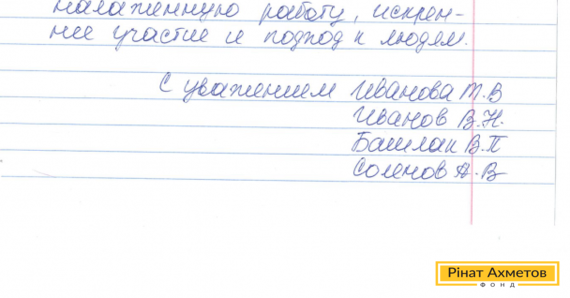 налаженную работу, искрен-
нее участие и подход к людям.
С уважением Иванова Т.В
Иванов В.Н.
Башлак В.П
Соленов А.В
Рінат Ахметов
ФОНД